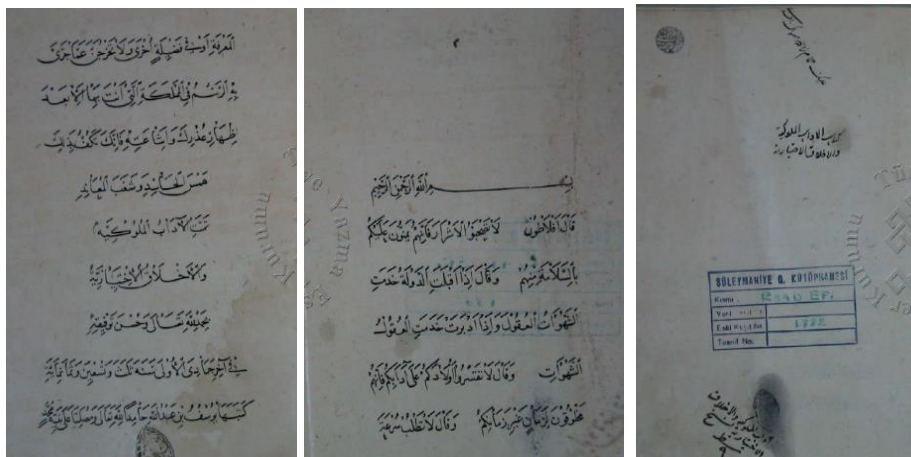 المعرفة أو في فضيلة أخرى ولا تخرجن عنا جرى
به الرسم في المملكة التي أنت بها إلا بعد
إظهار عذرك وإشاعته فإنك تكفى بذلك
همس الحاسد وشغب المعاند
تمت الآداب الملوكية
والأخلاق الاختيارية
بحمد الله تعالى وحسن توفيقه
في آخر جمادى الأولى سنة ثلث وتسعين وثمانمائة
كتبها يوسف بن عبد الله حامدا لله تعالى ومصليا على نبيه محمد
بسم الله الرحمن الرحيم
قال أفلاطون لا تصحبوا الأشرار فإنهم يمنون عليكم
بالسلامة منهم وقال إذا أقبلت الدولة خدمت
الشهوات العقول وإذا أدبرت خدمت العقول
الشهوات وقال لا تقسروا أولادكم على آدابكم فإنهم
مخلوقون لزمان غير زمانكم وقال لا تطلب سرعة
كتاب الآداب الملوكية
والأخلاق الاختيارية
SÜLEYMANİYE G. KÜTÜPHANESİ
Kısmı ESAD EF.
Yeni
Eski Kayıt No. 1772
Tasnif No.